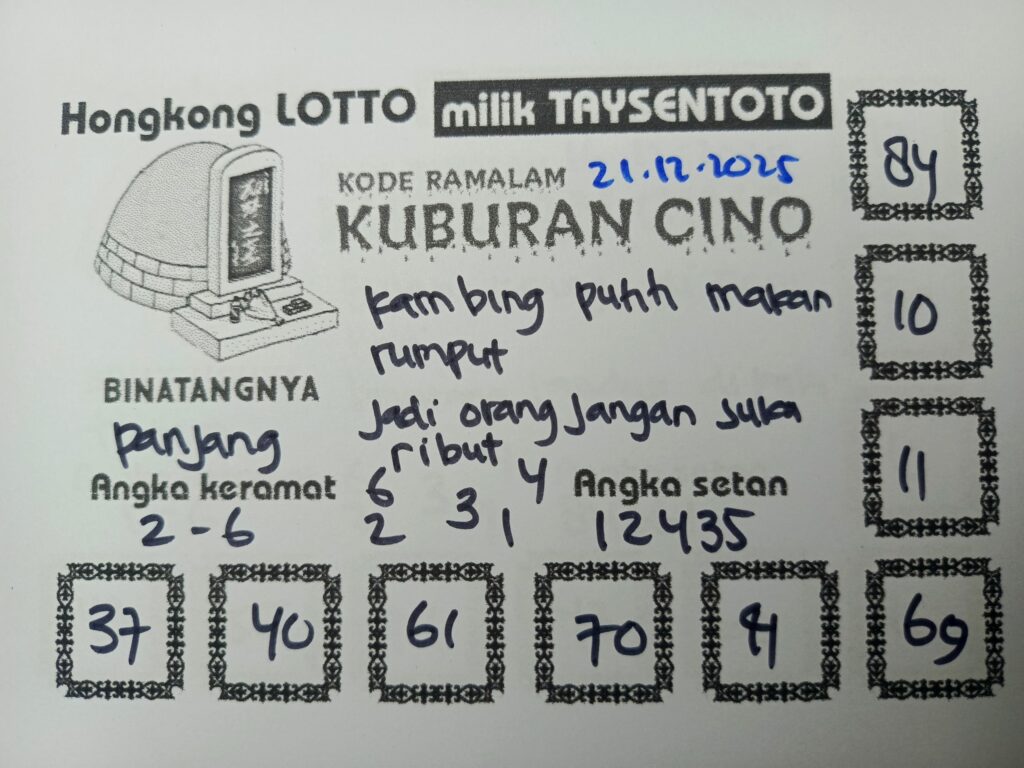 Hongkong LOTTO milik TAYSENTOTO
KODE RAMALAM 21.12.2025
KUBURAN CINO
kambing putih makan
rumput
Jadi orang Jangan suka
ribut
BINATANGNYA
panjang
Angka keramat
2-6
6 3 4
2 1
Angka setan
12435
84
10
11
37 40 61 70 69